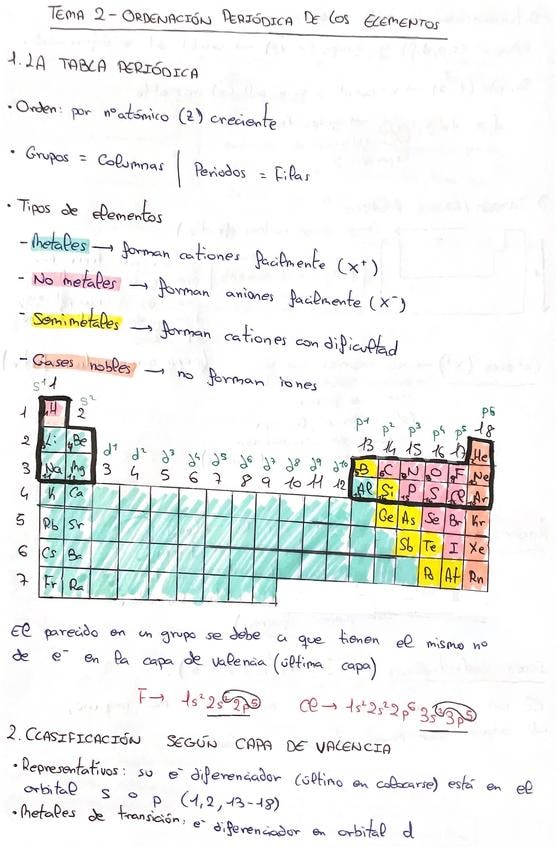 TEMA 2 - ORDENACIÓN PERIÓDICA DE LOS ELEMENTOS
1. LA TABLA PERIÓDICA
· Orden: por nº atómico (Z) creciente
· Grupos = Columnas | Periodos = Filas
· Tipos de elementos
- Metales → forman cationes facilmente (X⁺)
- No metales → forman aniones facilmente (X⁻)
- Semimetales → forman cationes con dificultad
- Gases nobles → no forman iones
s¹ 1 s² 2 d¹ 3 d² 4 d³ 5 d⁴ 6 d⁵ 7 d⁶ 8 d⁷ 9 d⁸ 10 d⁹ 11 d¹⁰ 12 p¹ 13 p² 14 p³ 15 p⁴ 16 p⁵ 17 p⁶ 18
1 H He
2 Li Be B C N O F Ne
3 Na Mg Al Si P S Cl Ar
4 K Ca Ge As Se Br Kr
5 Rb Sr Sb Te I Xe
6 Cs Ba At Rn
7 Fr Ra
El parecido en un grupo se debe a que tienen el mismo no
de e⁻ en la capa de valencia (última capa)
F → 1s² 2s² 2p⁵ Cl → 1s² 2s² 2p⁶ 3s² 3p⁵
2. CLASIFICACIÓN SEGÚN CAPA DE VALENCIA
· Representativos: su e⁻ diferenciador (último en colocarse) está en el
orbital s o p (1,2, 13-18)
· Metales de transición: e⁻ diferenciador en orbital d